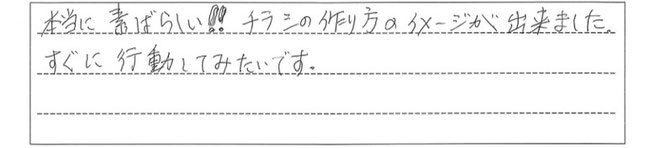 本当に素ばらしい!! チラシの作り方のイメージが出来ました。
すぐに行動してみたいです。